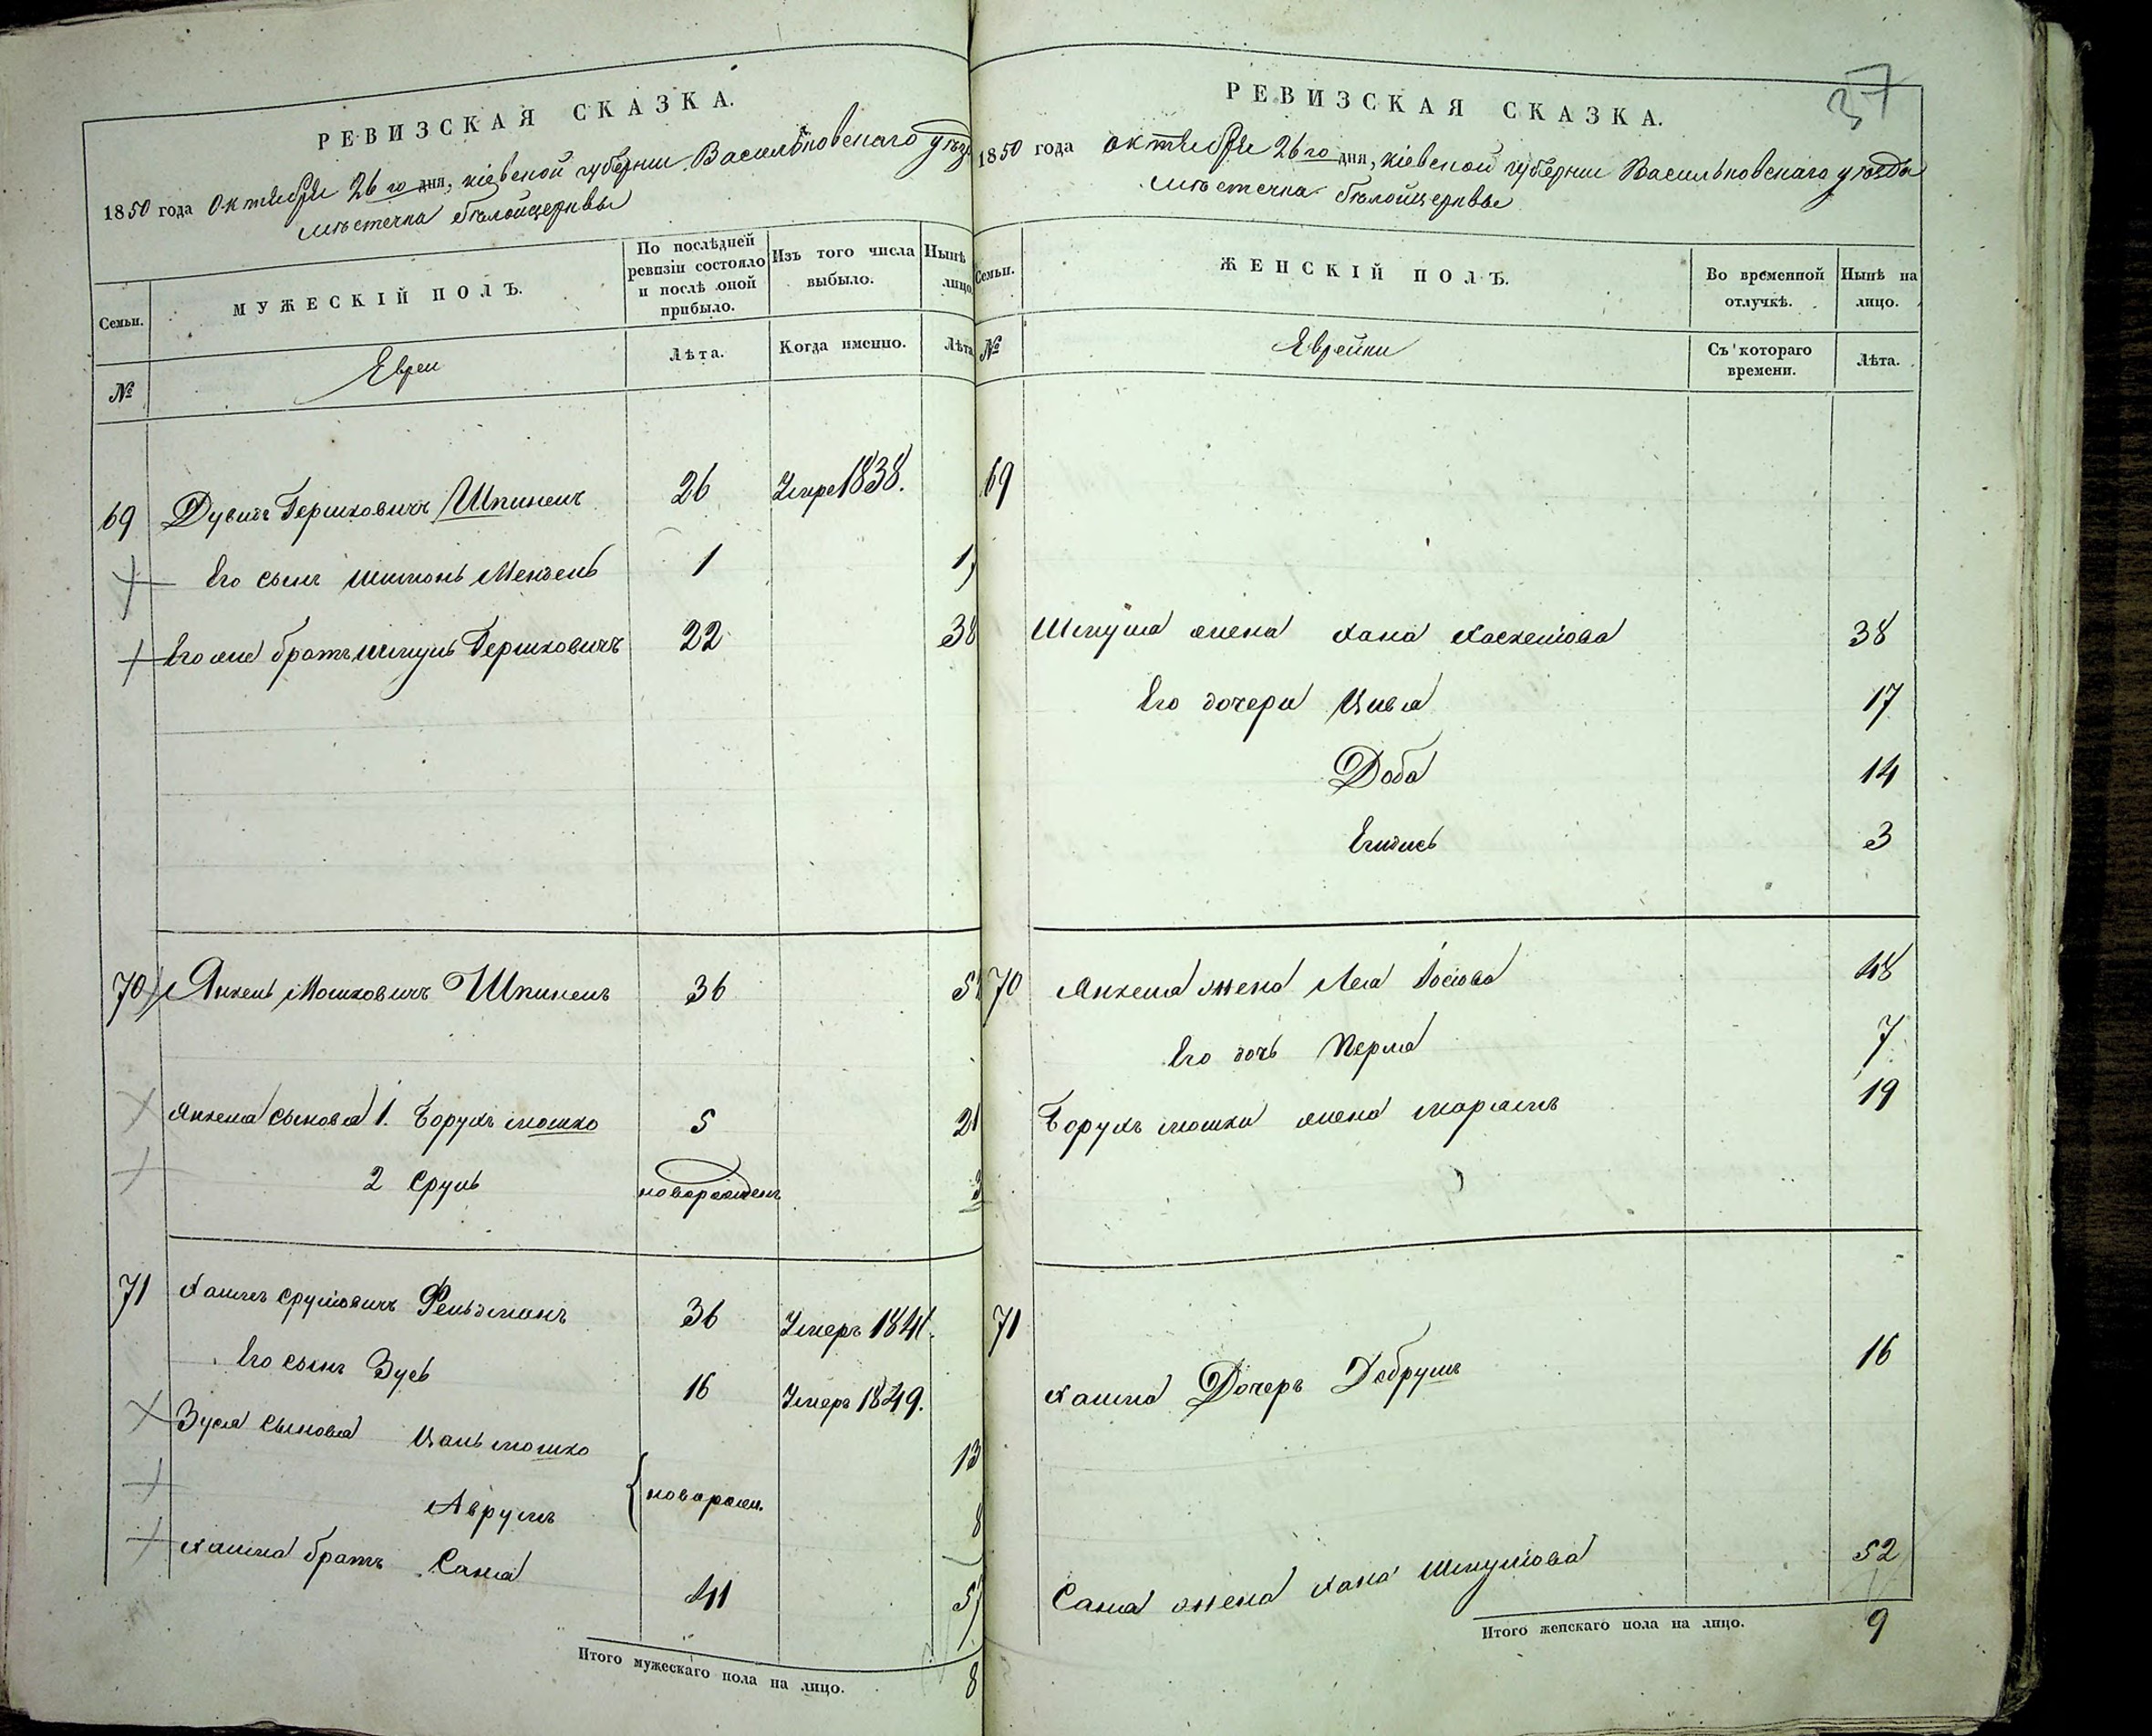 РЕВИЗСКАЯ СКАЗКА.
1850 года октября 26го дня, кіевской губерніи Васильковскаго уѣзда
мѣстечка бѣлойцерквы
Семьи.
МУЖЕСКІЙ ПОЛЪ.
По послѣдней ревизіи состояло и послѣ оной прибыло.
Изъ того числа выбыло.
Нынѣ лицо
№
Евреи
Лѣта.
Когда именно.
Лѣта
69 Дувидъ Гершковичъ Шпинель 26 Умре 1838.
Его сынъ Шимонь Мендель 1
Его же братъ Шмуль Гершковичъ 22 38
70 Янкель Мошковичъ Шпинель 36
Янкеля сыновья 1. Борухъ мошко 5 21
2 Сруль новорожден
71 Хаимъ Срулiовичъ Фельдманъ 36 Умеръ 1841.
Его сынъ Зусь 16 Умеръ 1849.
Зуся сыновья Цаль мошко 13
Аврумъ новорожд. 8
Хаима братъ Саня 41
Итого мужескаго пола на лицо. 8
37
РЕВИЗСКАЯ СКАЗКА.
1850 года октября 26го дня, кіевской губерніи Васильковскаго уѣзда
мѣстечка бѣлойцерквы
Семьи.
ЖЕНСКІЙ ПОЛЪ.
Во временной отлучкѣ.
Нынѣ на лицо.
№
Еврейки
Съ котораго времени.
Лѣта.
69
Шмуля жена Хана Хаскелiова 38
Его дочери Цивья 17
Доба 14
3
70 Янкеля жена Лея Іосіова 48
Его дочь Перля 7
Борухъ мошки жена Марьямъ 19
71
Хаима Дочеръ Добрушъ 16
Саня жена Хана Шмулiова 52
Итого женскаго пола на лицо. 9